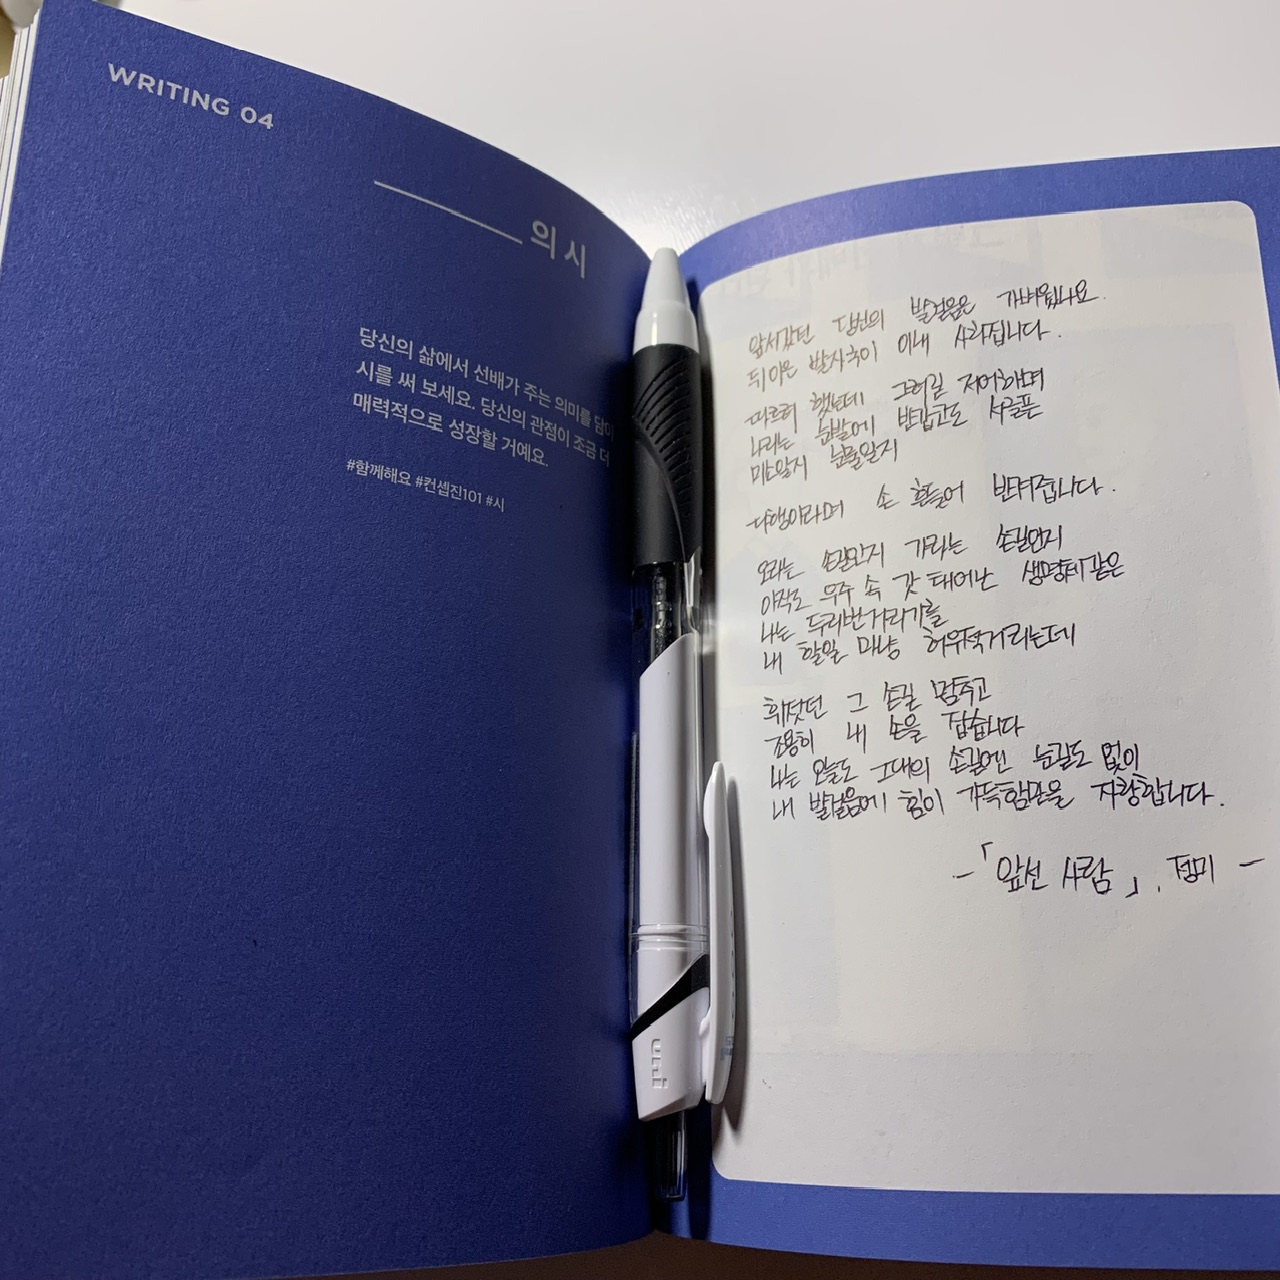 WRITING 04
의 시
당신의 삶에서 선배가 주는 의미를 담아
시를 써 보세요. 당신의 관점이 조금 더
매력적으로 성장할 거예요.
#함께해요 #컨셉진101 #시
앞서갔던 당신의 발걸음은 가벼웠나요.
뒤이은 발자국이 이내 사라집니다.
따르려 했는데 그려길 저어하며
나리는 눈발에 반갑고도 서글픈
미소일지 눈물일지
다행이라며 손 흔들어 반겨줍니다.
오라는 손길인지 가라는 손길인지
아직도 우주 속 갓 태어난 생명체같은
나는 두리번거리기를
내 할일 마냥 허우적거리는데
휘젓던 그 손길 멈추고
조용히 내 손을 잡습니다
나는 오늘도 그대의 손길엔 눈길도 없이
내 발걸음에 힘이 가득함만을 자랑합니다.
-「앞선 사람」, 정미 -
uni